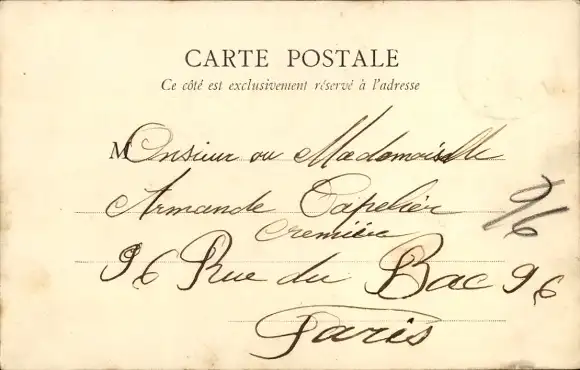 CARTE POSTALE
Ce côté est exclusivement réservé à l'adresse
Monsieur ou Mademoiselle
Armande Capelier
cremière
96 Rue du Bac 96
Paris
96